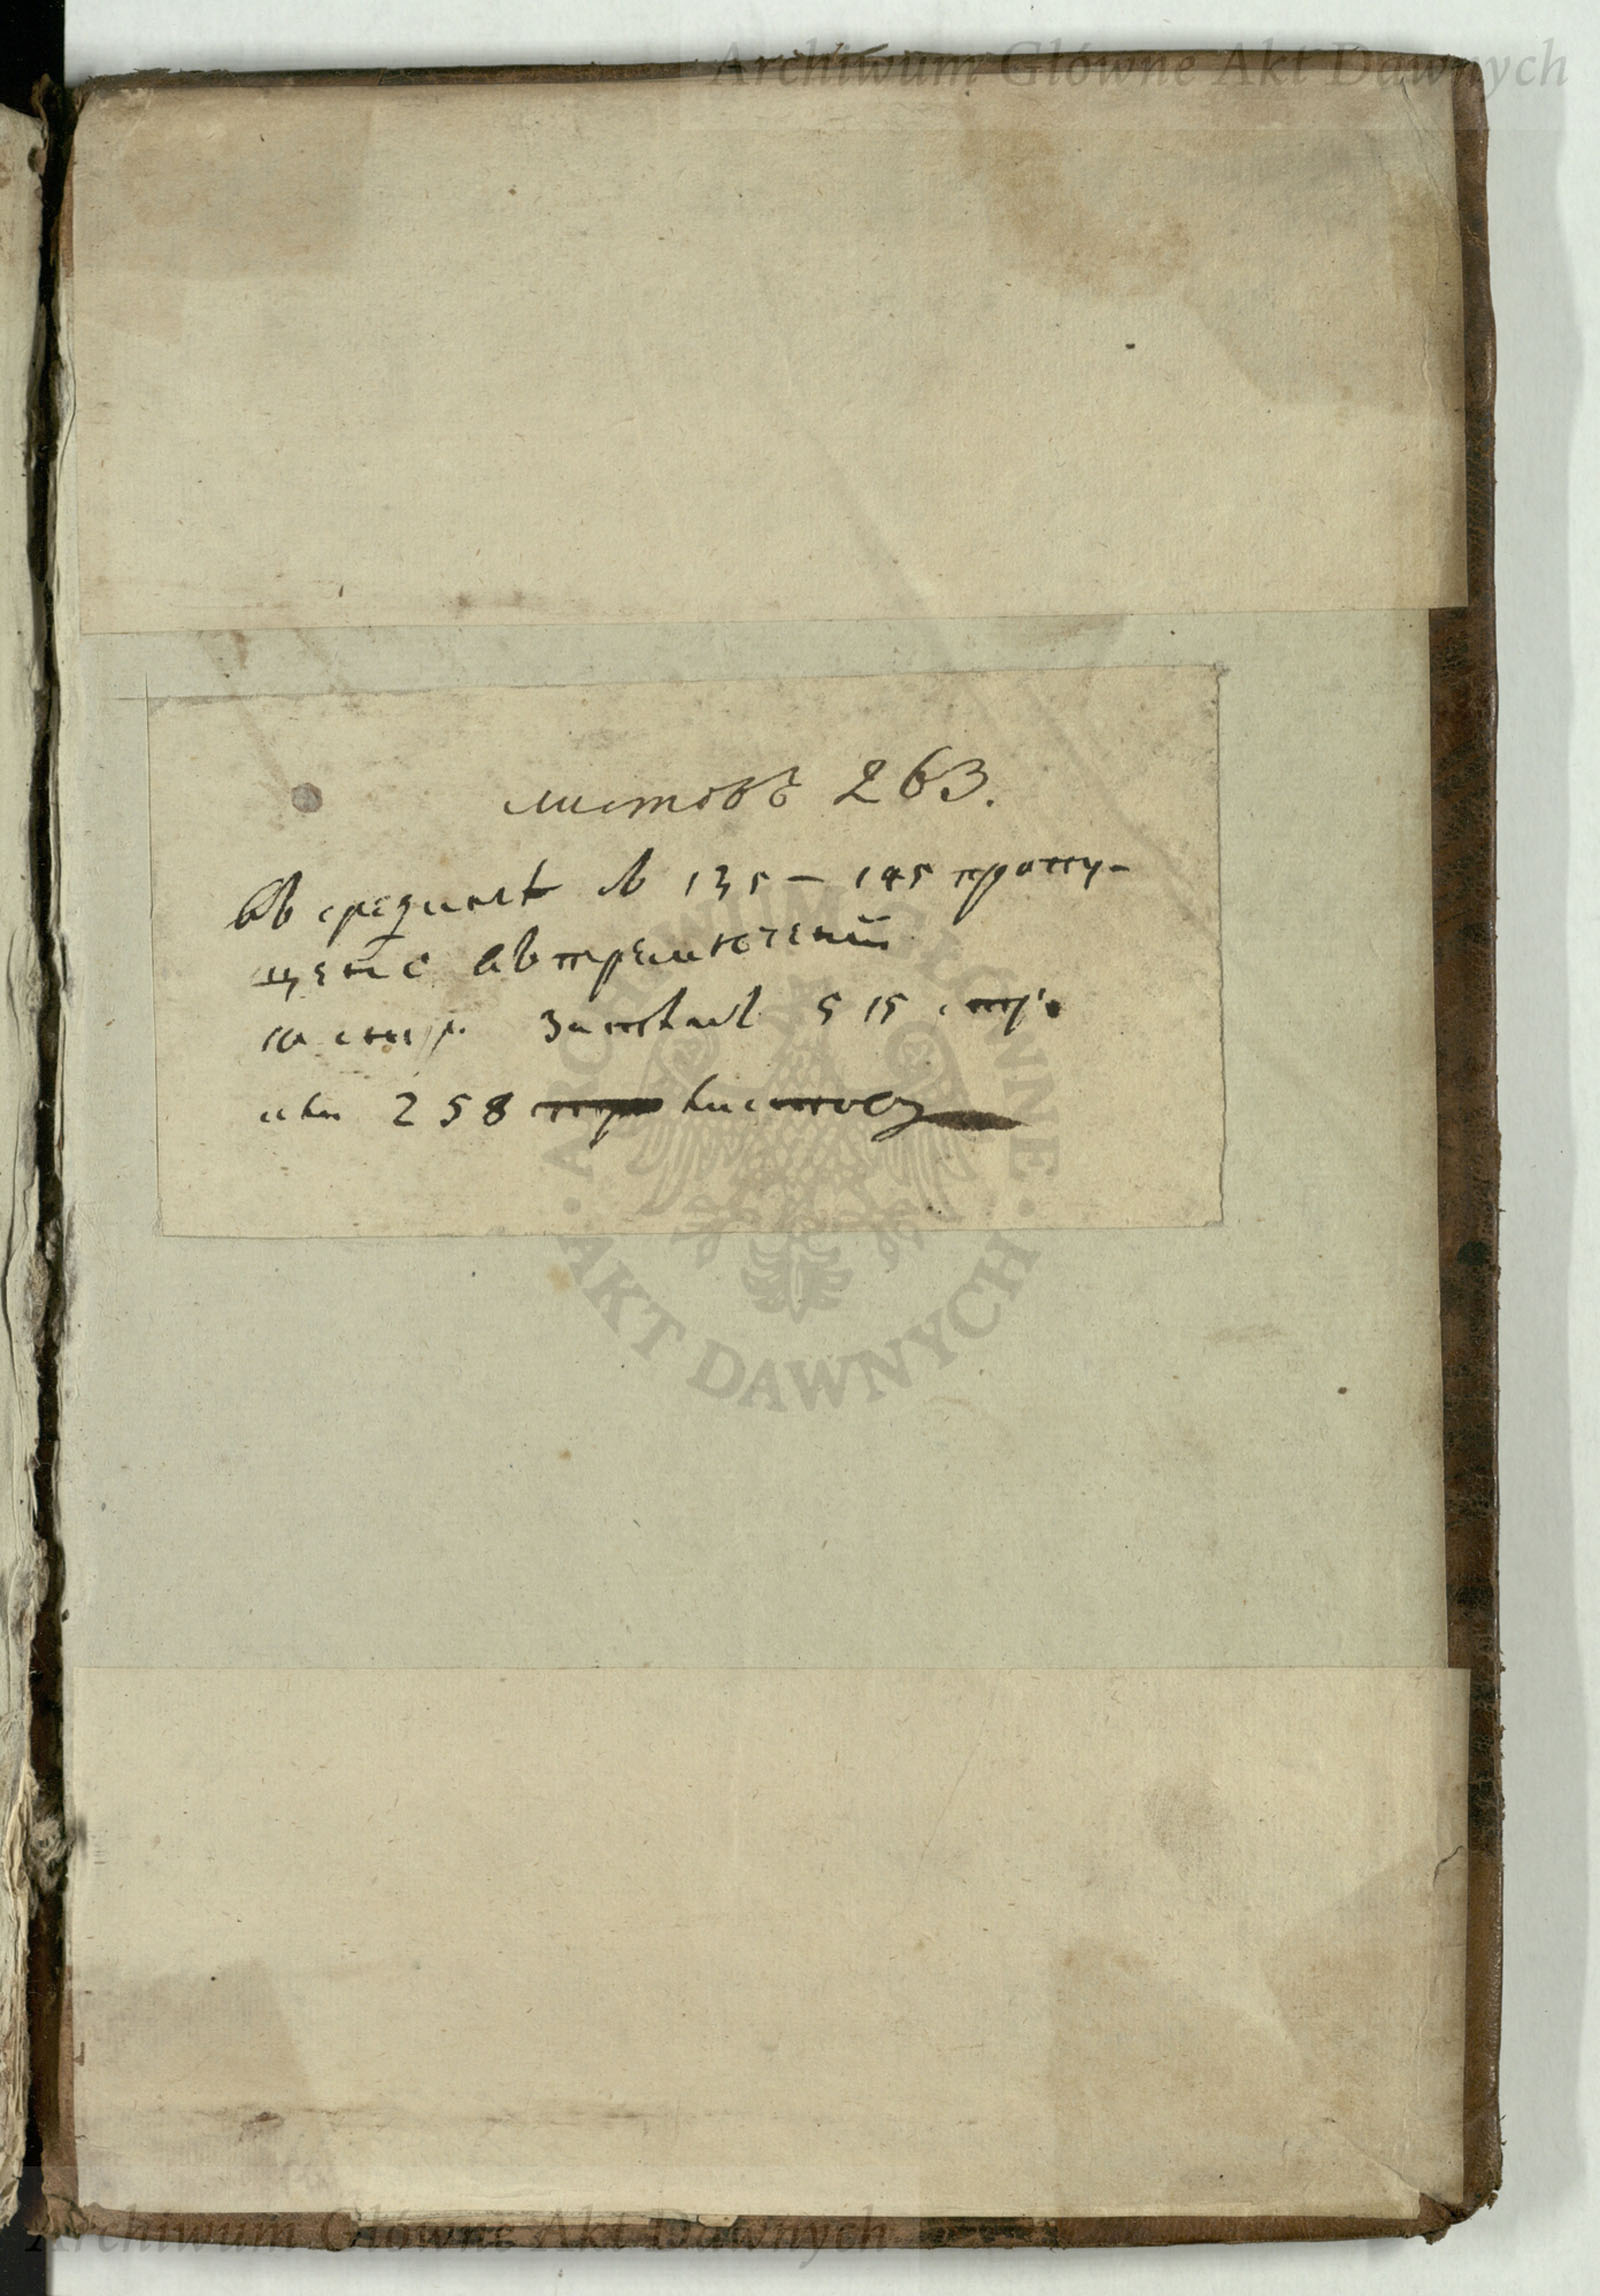 Archiwum Główne Akt Dawnych
листовъ 263.
Въ срединѣ № 135 – 145 пропу-
щено
10 стр. 515 стр.
или 258 листовъ
ARCHIWUM GŁÓWNE
AKT DAWNYCH
Archiwum Główne Akt Dawnych